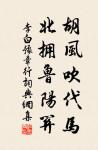 胡風吹代馬
北擁魯陽關
李白豫章行詞典網集